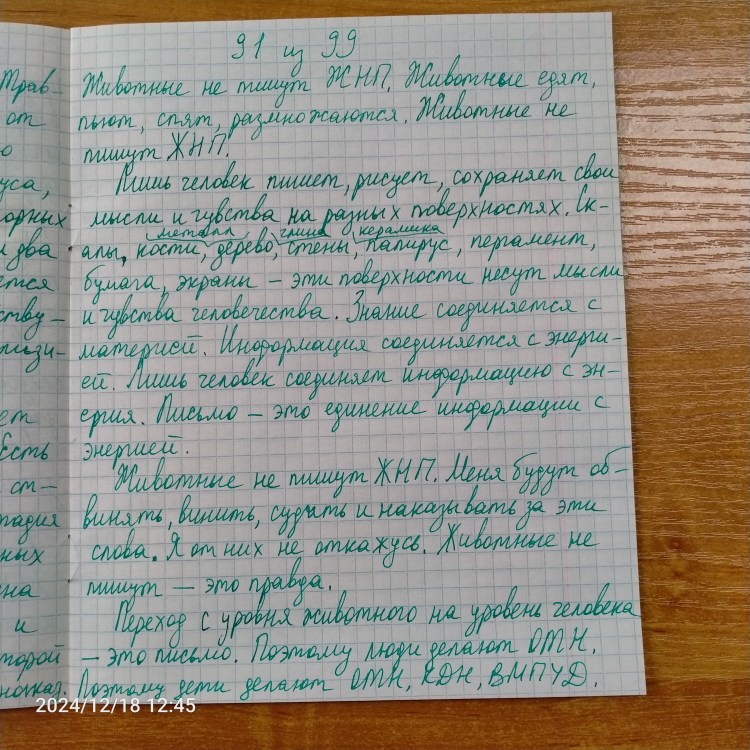 91 из 99
Трав- Животные не пишут ЖНП. Животные едят,
от пьют, спят, размножаются. Животные не
о пишут ЖНП.
уса, Лишь человек пишет, рисует, сохраняет свои
орных мысли и чувства на разных поверхностях. Ск-
металл глина керамика
и два алы, кости, дерево, стены, папирус, пергамент,
ется бумага, экраны – эти поверхности несут мысли
ству- и чувства человечества. Знание соединяется с
материей. Информация соединяется с энерги-
ей. Лишь человек соединяет информацию с эн-
ет ергия. Письмо – это единение информации с
Есть энергией.
ст- Животные не пишут ЖНП. Меня будут об-
тадия винять, винить, судить и наказывать за эти
ных слова. Я от них не откажусь. Животные не
на пишут — это правда.
и Переход с уровня животного на уровень человека
торой – это письмо. Поэтому люди делают ОТН.
Поэтому дети делают ОТН, КДН, ВМПУД.
2024/12/18 12:45